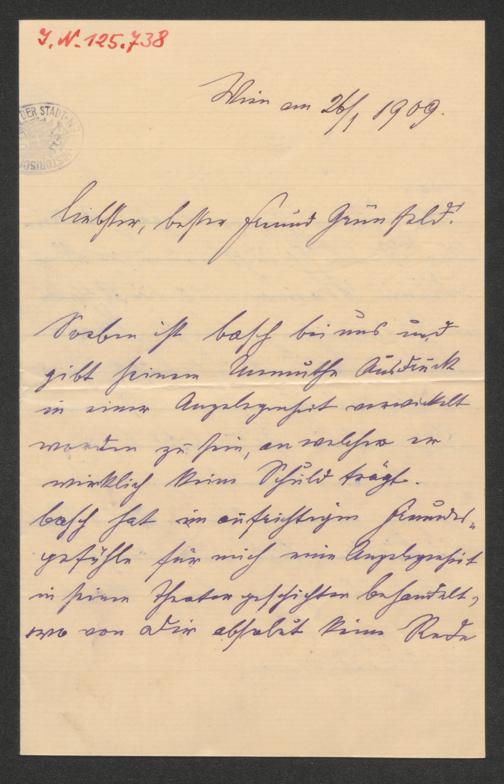 J. N. 125.738
DER STADT
HISTORISCH
Wien am 26/1 1909.
Liebster, bester Freund Grünfeld!
Soeben ist Basch bei uns und
gibt seinem Unmuthe Ausdruck
in einer Angelegenheit verwickelt
worden zu sein, an welcher er
wirklich keine Schuld trägt.
Basch hat im aufrichtigen Freundes-
gefühle für mich eine Angelegenheit
in seinen Theatergeschichten behandelt,
wo von Dir absolut keine Rede